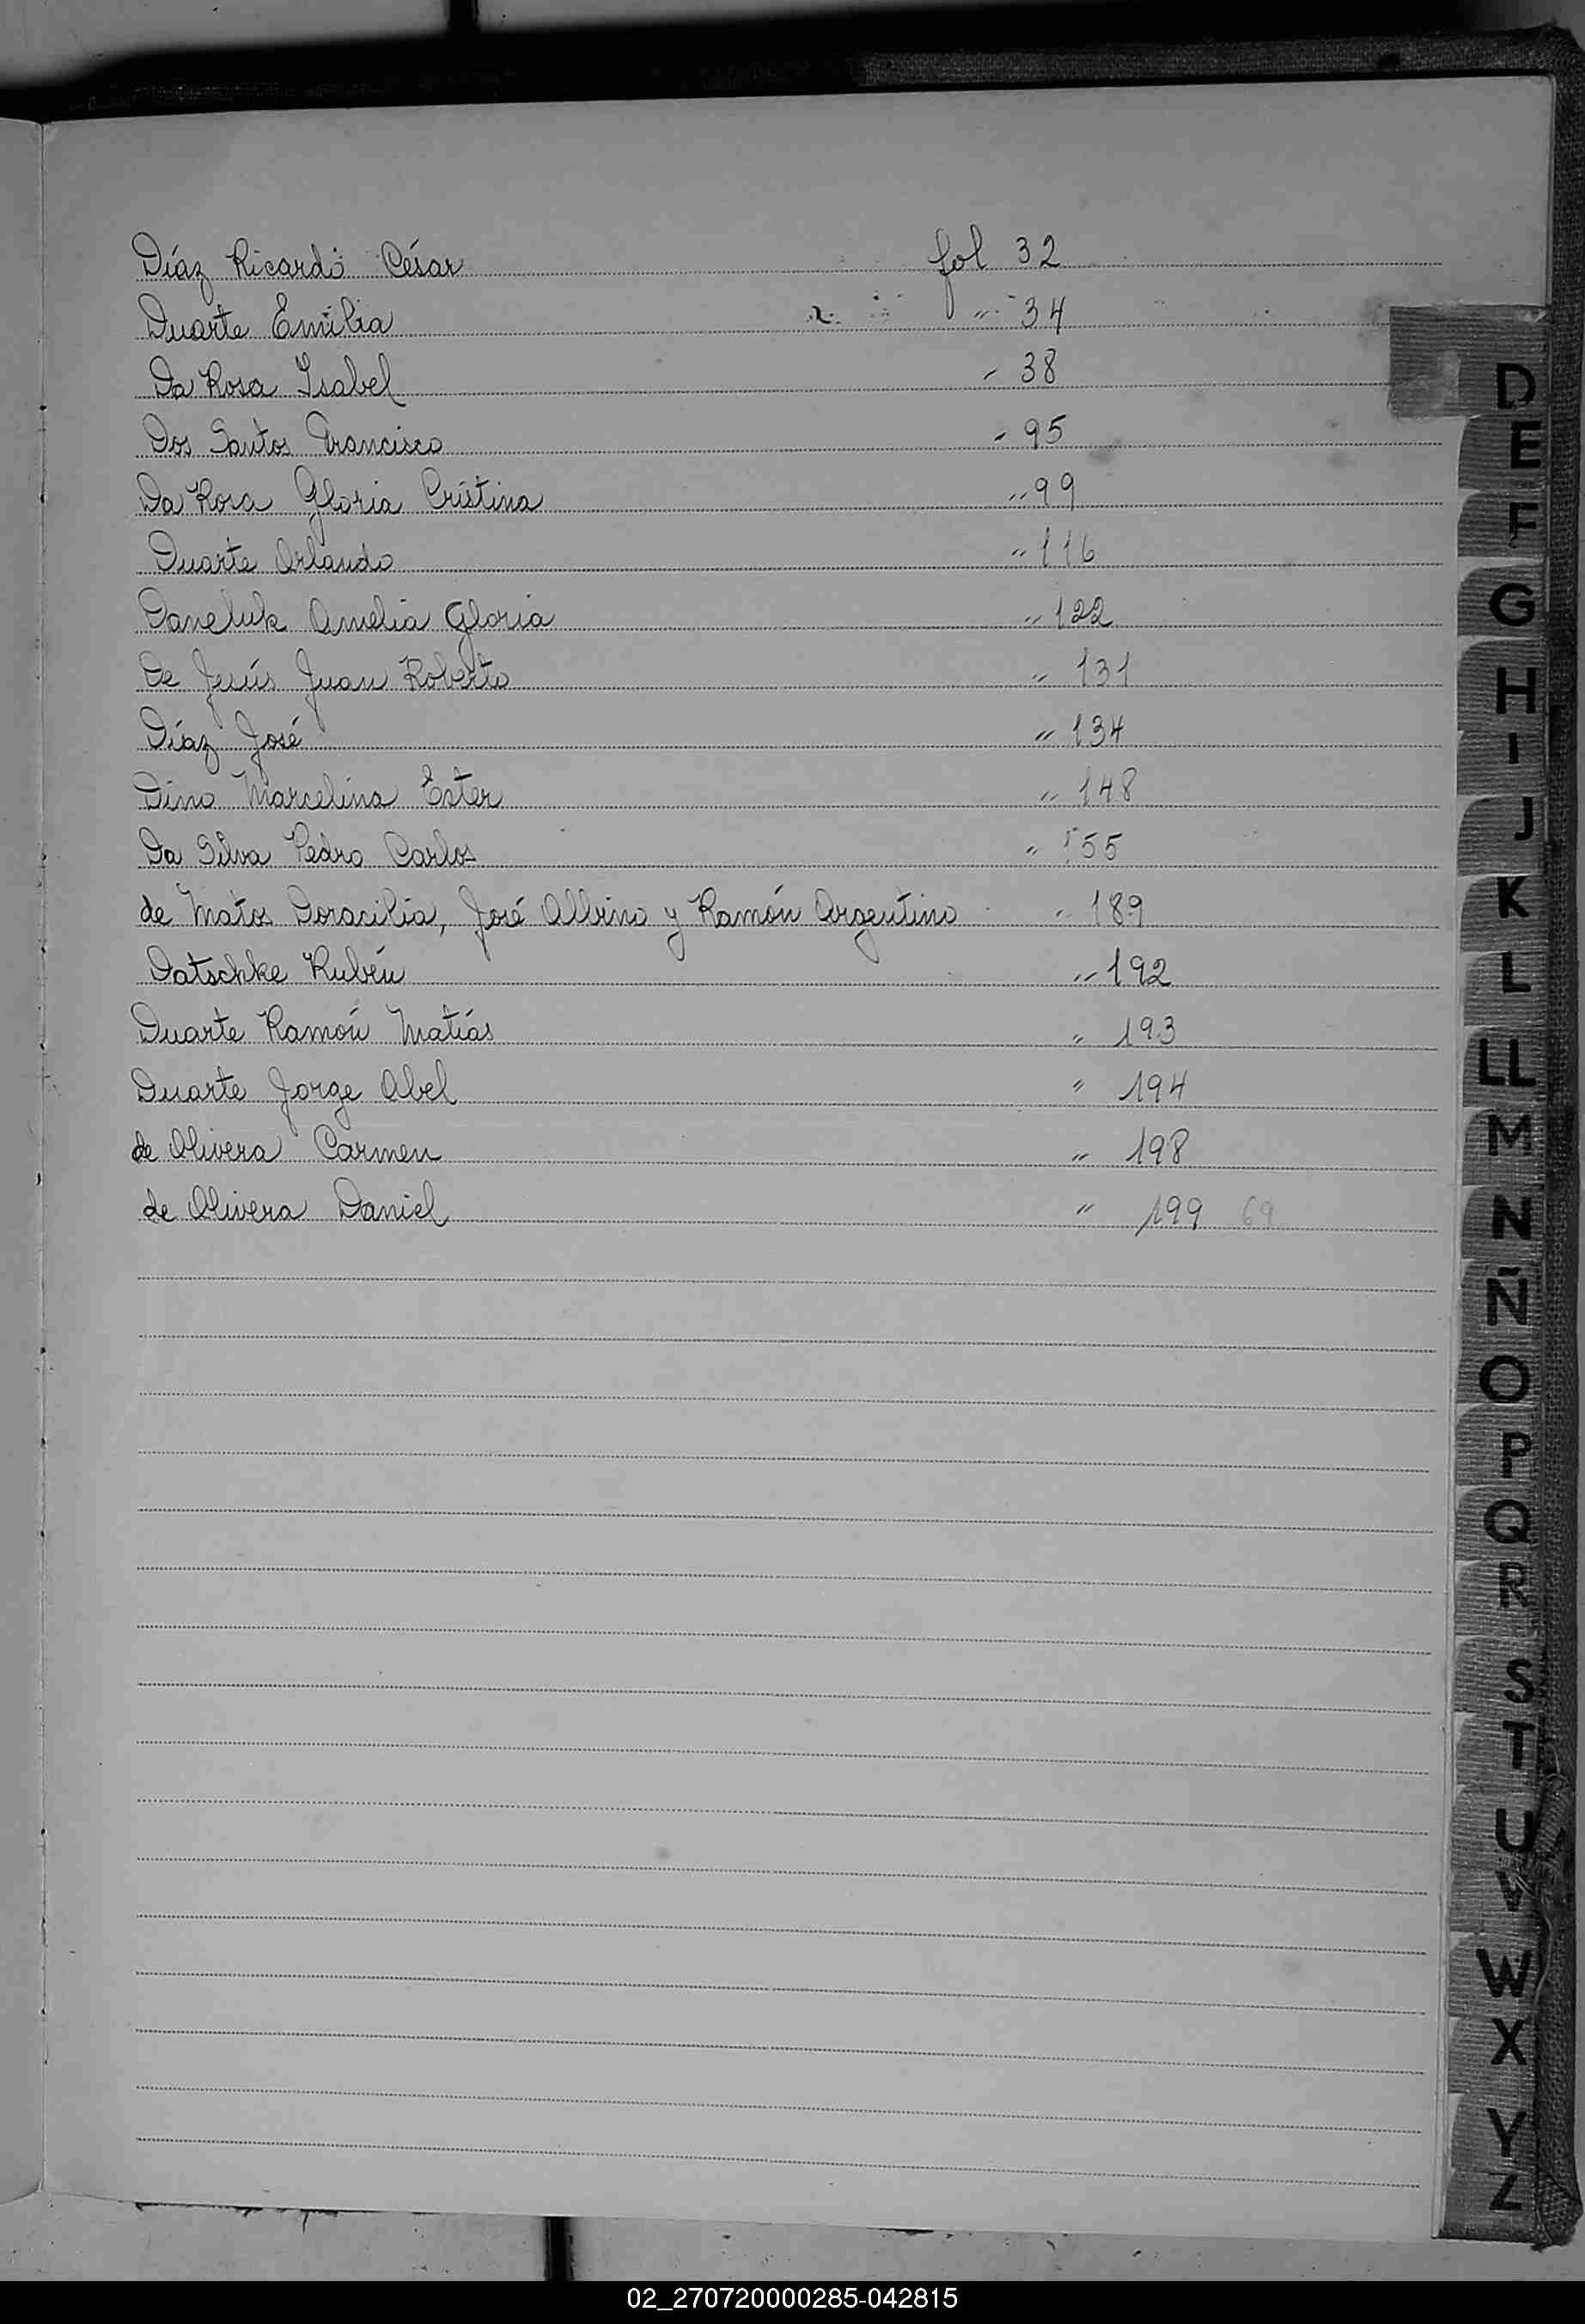 Díaz Ricardo César fol 32
Duarte Emilia " 34
Da Rosa Isabel " 38
Dos Santos Francisco " 95
Da Rosa Gloria Cristina " 99
Duarte Orlando " 116
Daneluk Amelia Gloria " 122
De Jesús Juan Roberto " 131
Díaz José " 134
Dino Marcelina Ester " 148
Da Silva Pedro Carlos " 155
de Matos Doracilia, José Albino y Ramón Argentino " 189
Datschke Rubén " 192
Duarte Ramón Matías " 193
Duarte Jorge Abel " 194
de Olivera Carmen " 198
de Olivera Daniel " 199 69
D
E
F
G
H
I
J
K
L
LL
M
N
Ñ
O
P
Q
R
S
T
U
V
W
X
Y
Z
02_270720000285-042815